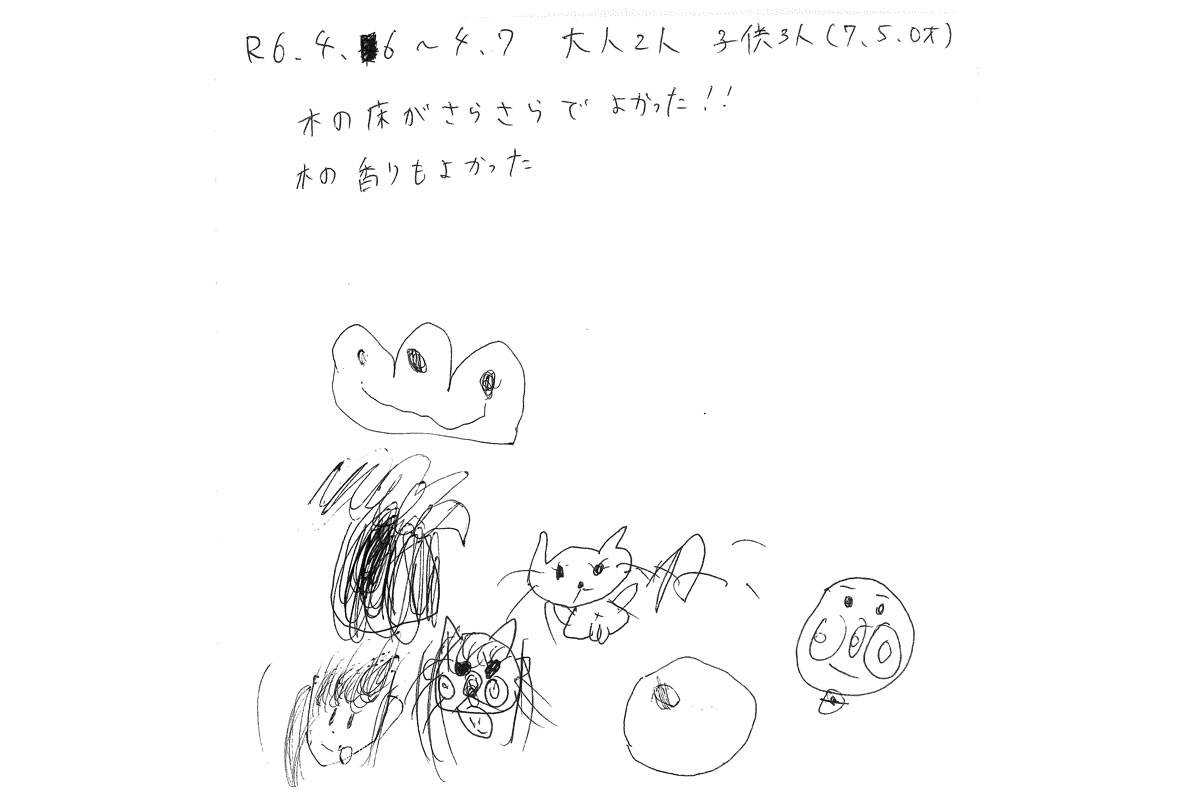 R6.4.6～4.7 大人2人 子供3人(7、5、0才)
木の床がさらさらでよかった!!
木の香りもよかった